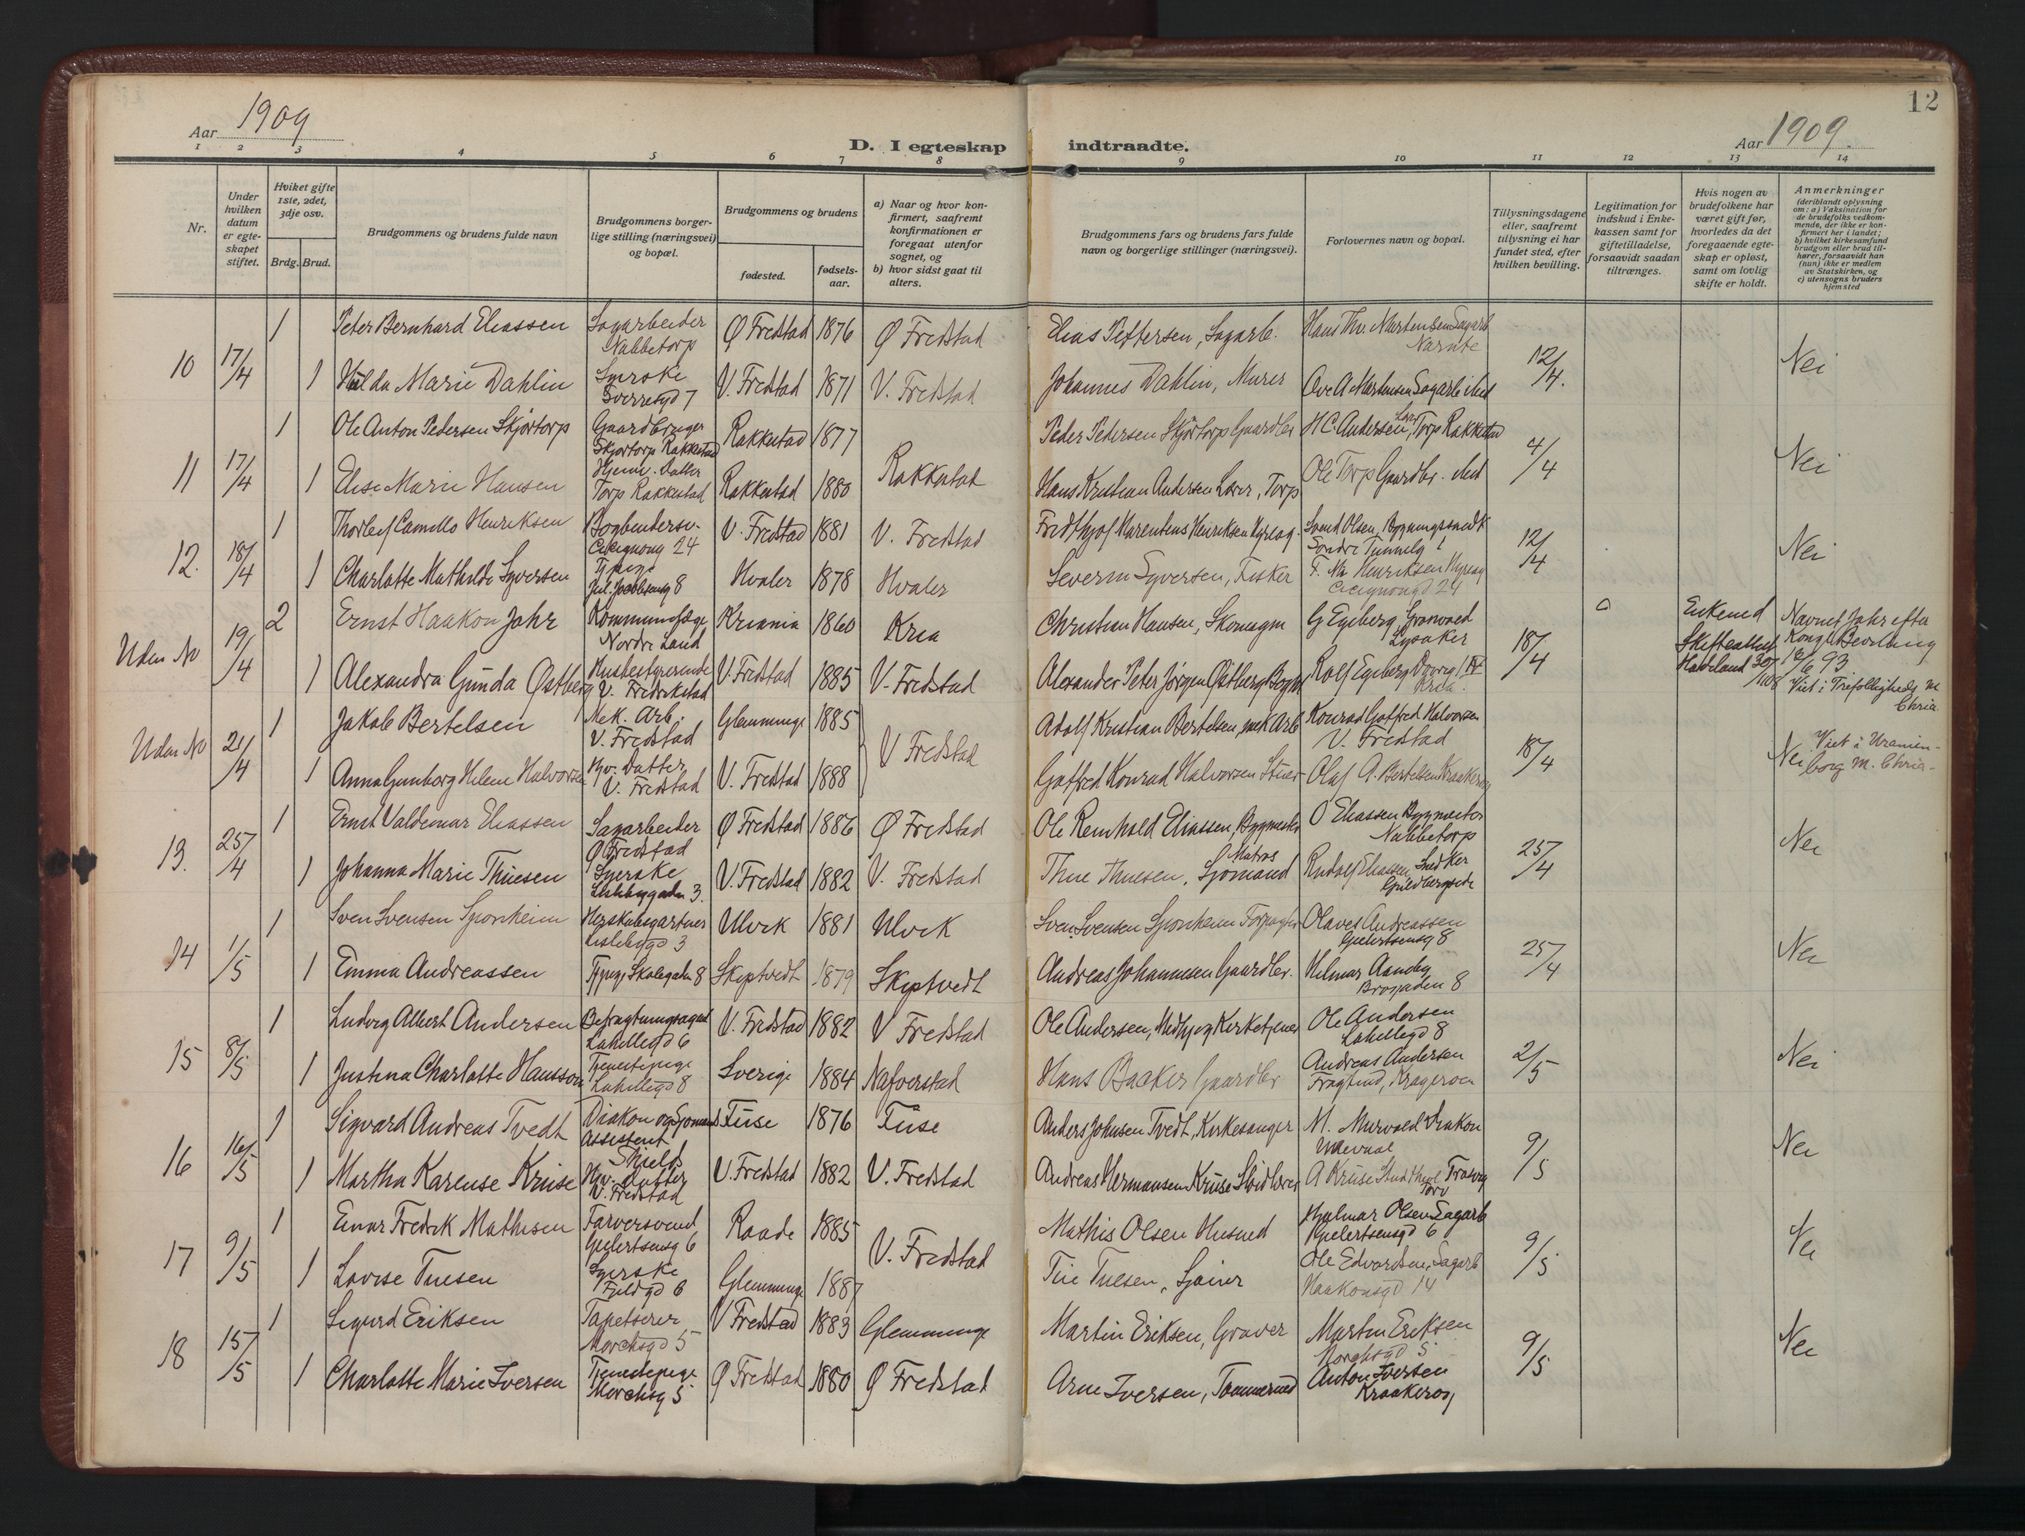 Aar 1909
D. I egteskap indtraadte.
Aar 1909.
12
1 2 3 4 5 6 7 8 9 10 11 12 13 14
Nr.
Under hvilken datum er egteskapet stiftet.
Hviket gifte 1ste, 2det, 3dje osv.
Brdg. Brud.
Brudgommens og brudens fulde navn
Brudgommens borgerlige stilling (næringsvei) og bopæl.
Brudgommens og brudens
fødested.
fødselsaar.
a) Naar og hvor konfirmert, saafremt konfirmationen er foregaat utenfor sognet, og
b) hvor sidst gaat til alters.
Brudgommens fars og brudens fars fulde navn og borgerlige stillinger (næringsvei).
Forlovernes navn og bopæl.
Tillysningsdagene eller, saafremt tillysning ei har fundet sted, efter hvilken bevilling.
Legitimation for indskud i Enkekassen samt for giftetilladelse, forsaavidt saadan tiltrænges.
Hvis nogen av brudefolkene har været gift før, hvorledes da det foregaaende egteskap er opløst, samt om lovlig skifte er holdt.
Anmerkninger
(deriblandt oplysning om: a) Vaksination for de brudefolks vedkommende, der ikke er konfirmert her i landet; b) hvilket kirkesamfund brudgom eller brud tilhører, forsaavidt han (hun) ikke er medlem av Statskirken, og c) utensogns bruders hjemsted
10 17/4
1 Peter Bernhard Eliassen Sagarbeider Nabbetorp Ø Fredstad 1876 Ø Fredstad Elias Pettersen, Sagarb. Hans Thv. Martensen Sagarb
1 Hulda Marie Dahlin Syerske Sverresgd 7 V. Fredstad 1871 V. Fredstad Johannes Dahlin, Murer Ove A Martensen Sagarb 12/4. Nei
11 17/4
1 Ole Anton Pedersen Skjørtorp Gaardbruger Skjørtorp Rakkestad Rakkestad 1877 Rakkestad Peder Pedersen Skjørtorp Gaardbr H C Andersen, Lærer Torp Rakkestad
1 Elise Marie Hansen Hjemv. Datter Torp Rakkestad Rakkestad 1880 Hans Kristian Andersen Lærer, Torp Ole Torp Gaardbr. 4/4 Nei
12. 18/4
1 Thorleif Camillo Henriksen Bogbindersv. Cicignong 24 V. Fredstad 1881 V. Fredstad Henriksen Svend Olsen, Bygningssnedk Søndre Tunnelg 1
1 Charlotte Mathilde Syversen Tjpige 8 Hvaler 1878 Hvaler Severin Syversen, Fisker Henriksen Cicignongd 24 12/4 Nei
Uden No 19/4
2 Ernst Haakon Jahr Nordre Land Kriania 1860 Kria Christian Hansen, Skomagm G Egeberg, Granvold Lysaker Enkemd Skifteattest Hadeland Navnet Jahr efter Kongl Bevilling 16/6 93
1 Alexandra Gunda Østberg Husbestyrerinde V. Fredrikstad V. Fredstad 1885 V. Fredstad Alexander Peter Jørgen Østberg Rolf Egeberg 18/4 Viet i Trefoldigheds M Chria
Uden No 21/4
1 Jakob Bertelsen Mek. Arb. V. Fredstad Glemminge 1885 V Fredstad Adolf Kristian Bertelsen, mek Arb Konrad Gotfred Halvorsen V. Fredstad
1 Anna Gunborg Helene Halvorsen Hjv. Datter V. Fredstad V. Fredstad 1888 Gotfred Konrad Halvorsen Olaf A. Bertelsen Kraakerøy 18/4 Nei Viet i Uranienborg M. Chria
13. 25/4
1 Ernst Valdemar Eliassen Sagarbeider Ø Fredstad Ø Fredstad 1886 Ø Fredstad Ole Reinhold Eliassen, Bygmester O Eliassen Bygmester Nabbetorp
1 Johanna Marie Thuesen Syerske V. Fredstad 1882 V. Fredstad Thue Thuesen, Matros Sjømand Rudolf Eliassen Snedker 25/4 Nei
14 1/5
1 Sven Svensen Sponheim Herskabsgartner Lislebygd 3 Ulvik 1881 Ulvik Sven Svensen Sponheim Forpagter Olaves Andreassen Gjelertsensg 8
1 Emma Andreassen Tjpige Skolegaden 8 Skiptvedt 1879 Skiptvedt Andreas Johannesen Gaardbr. Hilmar Aandby Brogaden 8 25/4 Nei
15 8/5
1 Ludvig Albert Andersen Befragtningsagent Lahellegd 6 V. Fredstad 1882 V Fredstad Ole Andersen, Kirketjener Ole Andersen Lahellegd 8
1 Justina Charlotte Hansson Tjenestepige Lahellegd 8 Sverige 1884 Nafverstad Hans Backer Gaardbr Andreas Andersen Kragerøen 2/5 Nei
16 16/5
1 Sigvard Andreas Tvedt Diakon og Sjømands Assistent Shields Fuse 1876 Fuse Anders Johnsen Tvedt, Kirkesanger M. Murvold Diakon Ullevaal
1 Martha Karense Kruse Hjv. Datter V. Fredstad V. Fredstad 1882 V. Fredstad Andreas Hermansen Kruse Skibsfører A Kruse Stud theol 9/5 Nei
17 9/5
1 Einar Fredrik Mathisen Farversvend Gjelertsensg 6 Raade 1885 V. Fredstad Mathis Olsen Husmd Hjalmar Olsen Sagarb Gjelertsensgd 6
1 Lovise Tuesen Syerske Fjeldgd 6 Glemminge 1887 Tue Tuesen, Sjauer Ole Edvardsen, Sagarb Haakonsgd 14 9/5 Nei
18 15/5
1 Sigurd Eriksen Tapetserer Morchsgd 5 V Fredstad 1883 Glemminge Martin Eriksen, Graver Martin Eriksen Morchsgd 5
1 Charlotte Marie Iversen Tjenestepige Morchsg 5 Ø Fredstad 1880 Ø Fredstad Arne Iversen, Tømmermd Anton Iversen Kraakerøy 9/5 Nei